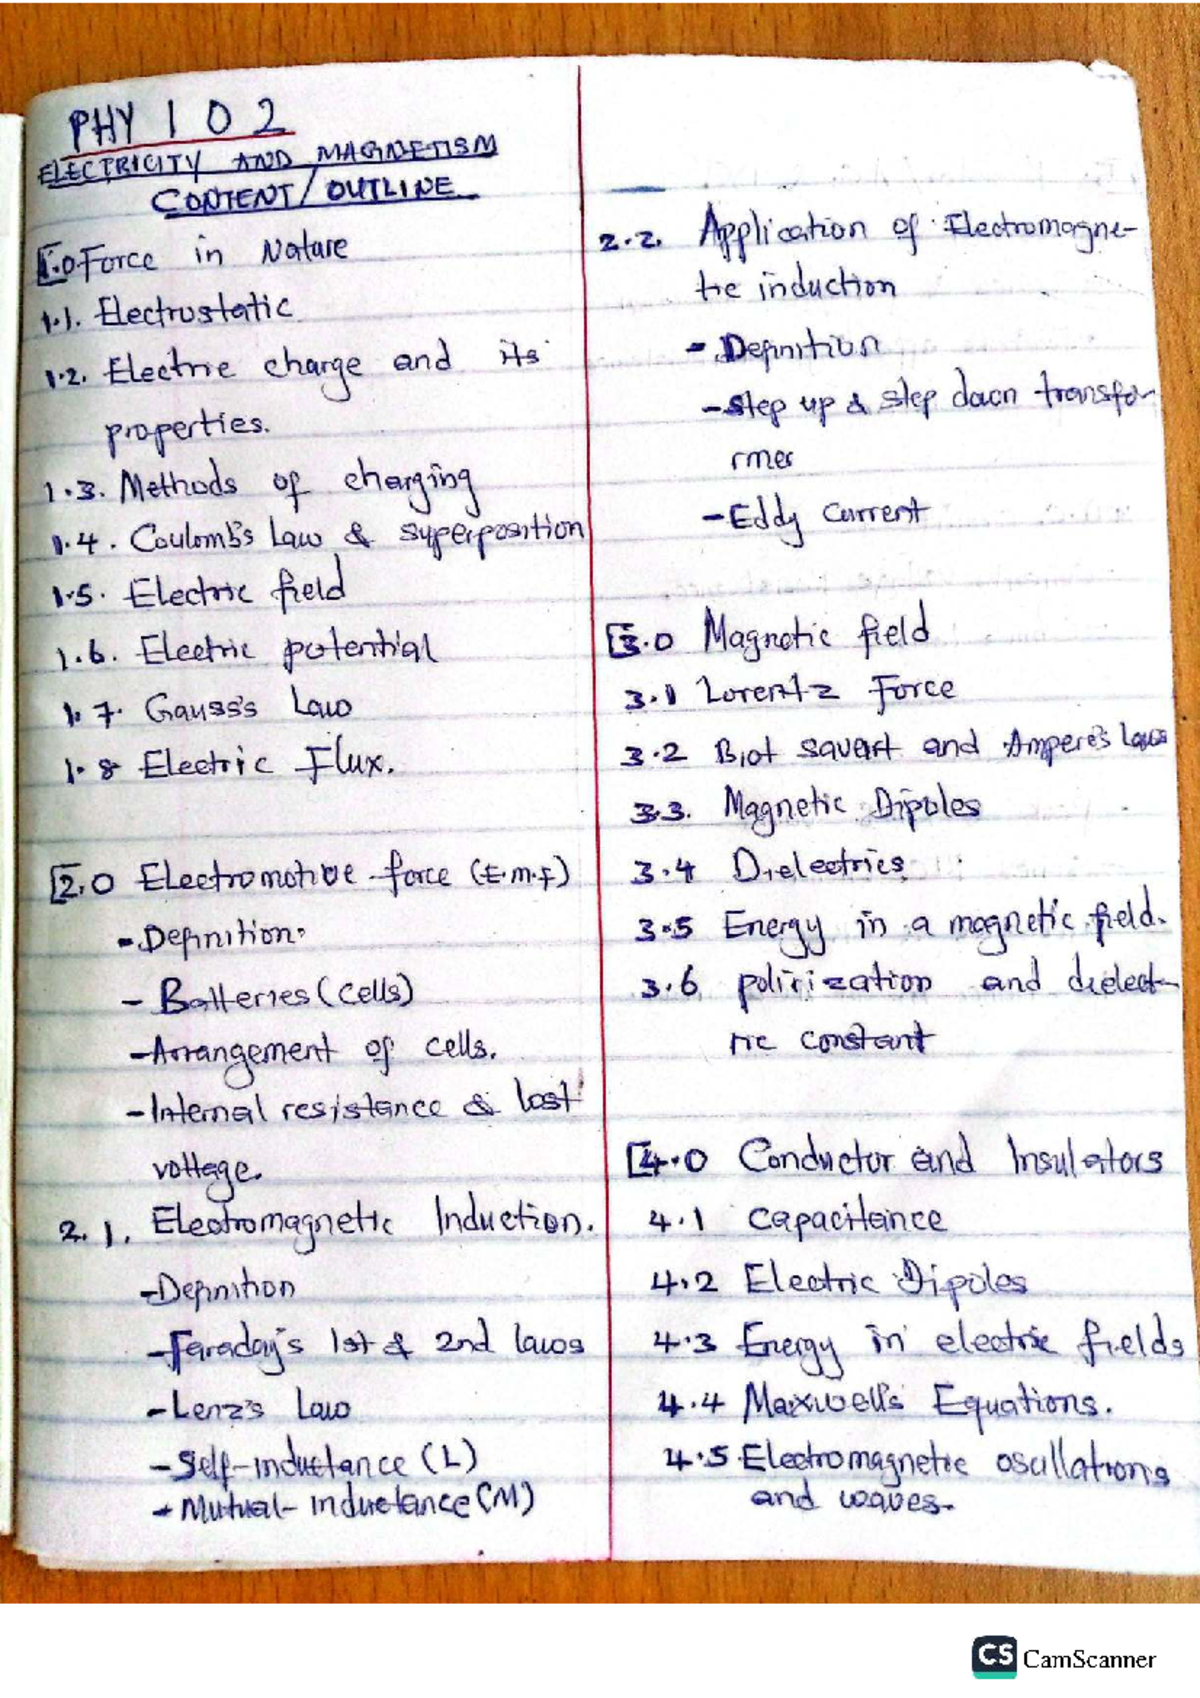 PHY 102
ELECTRICITY AND MAGNETISM
CONTENT/OUTLINE
1.0 Force in Nature
1.1. Electrostatic
1.2. Electric charge and its
properties.
1.3. Methods of charging
1.4. Coulomb's Law & superposition
1.5. Electric field
1.6. Electric potential
1.7. Gauss's Law
1.8 Electric Flux.
2.0 Electromotive force (E.m.f)
- Definition.
- Batteries (cells)
- Arrangement of cells.
- Internal resistance & lost
voltage.
2.1. Electromagnetic Induction.
- Definition
- Faraday's 1st & 2nd laws
- Lenz's Law
- Self-inductance (L)
- Mutual-inductance (M)
2.2. Application of Electromagne-
tic induction
- Definition
- step up & step down transfo-
rmer
- Eddy current
3.0 Magnetic field
3.1 Lorentz Force
3.2 Biot savart and Ampere's laws
3.3. Magnetic Dipoles
3.4 Dielectrics
3.5 Energy in a magnetic field.
3.6 polirization and dielect-
ric constant
4.0 Conductor and Insulators
4.1 Capacitance
4.2 Electric Dipoles
4.3 Energy in electric fields
4.4 Maxwell's Equations.
4.5 Electromagnetic oscillations
and waves.
CS CamScanner